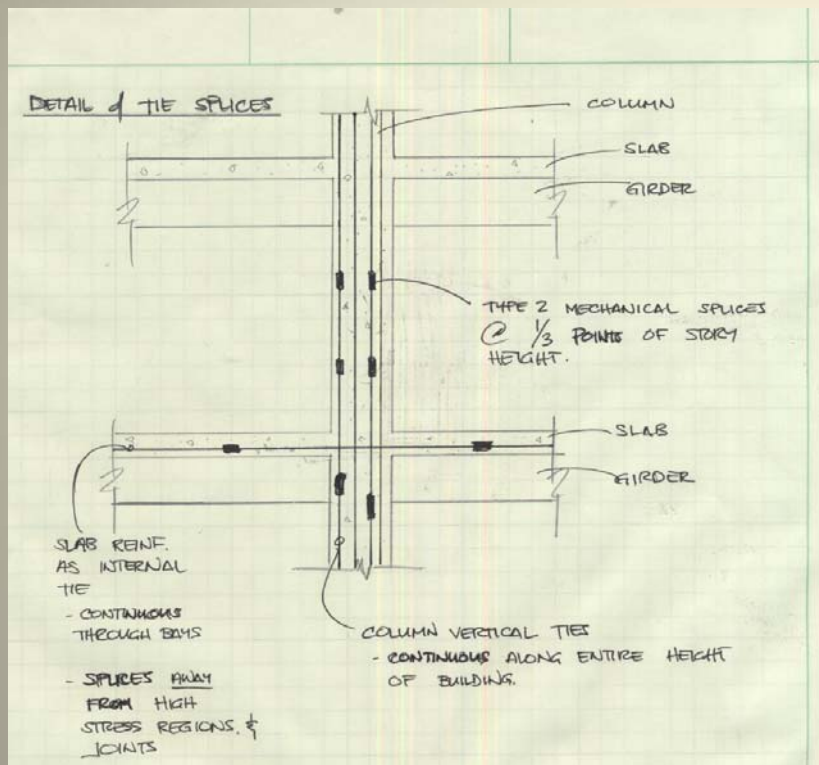 DETAIL of TIE SPLICES
COLUMN
SLAB
GIRDER
TYPE 2 MECHANICAL SPLICES
@ 1/3 POINTS OF STORY
HEIGHT.
SLAB
GIRDER
SLAB REINF.
AS INTERNAL
TIE
- CONTINUOUS
THROUGH BAYS
- SPLICES AWAY
FROM HIGH
STRESS REGIONS &
JOINTS
COLUMN VERTICAL TIES
- CONTINUOUS ALONG ENTIRE HEIGHT
OF BUILDING.